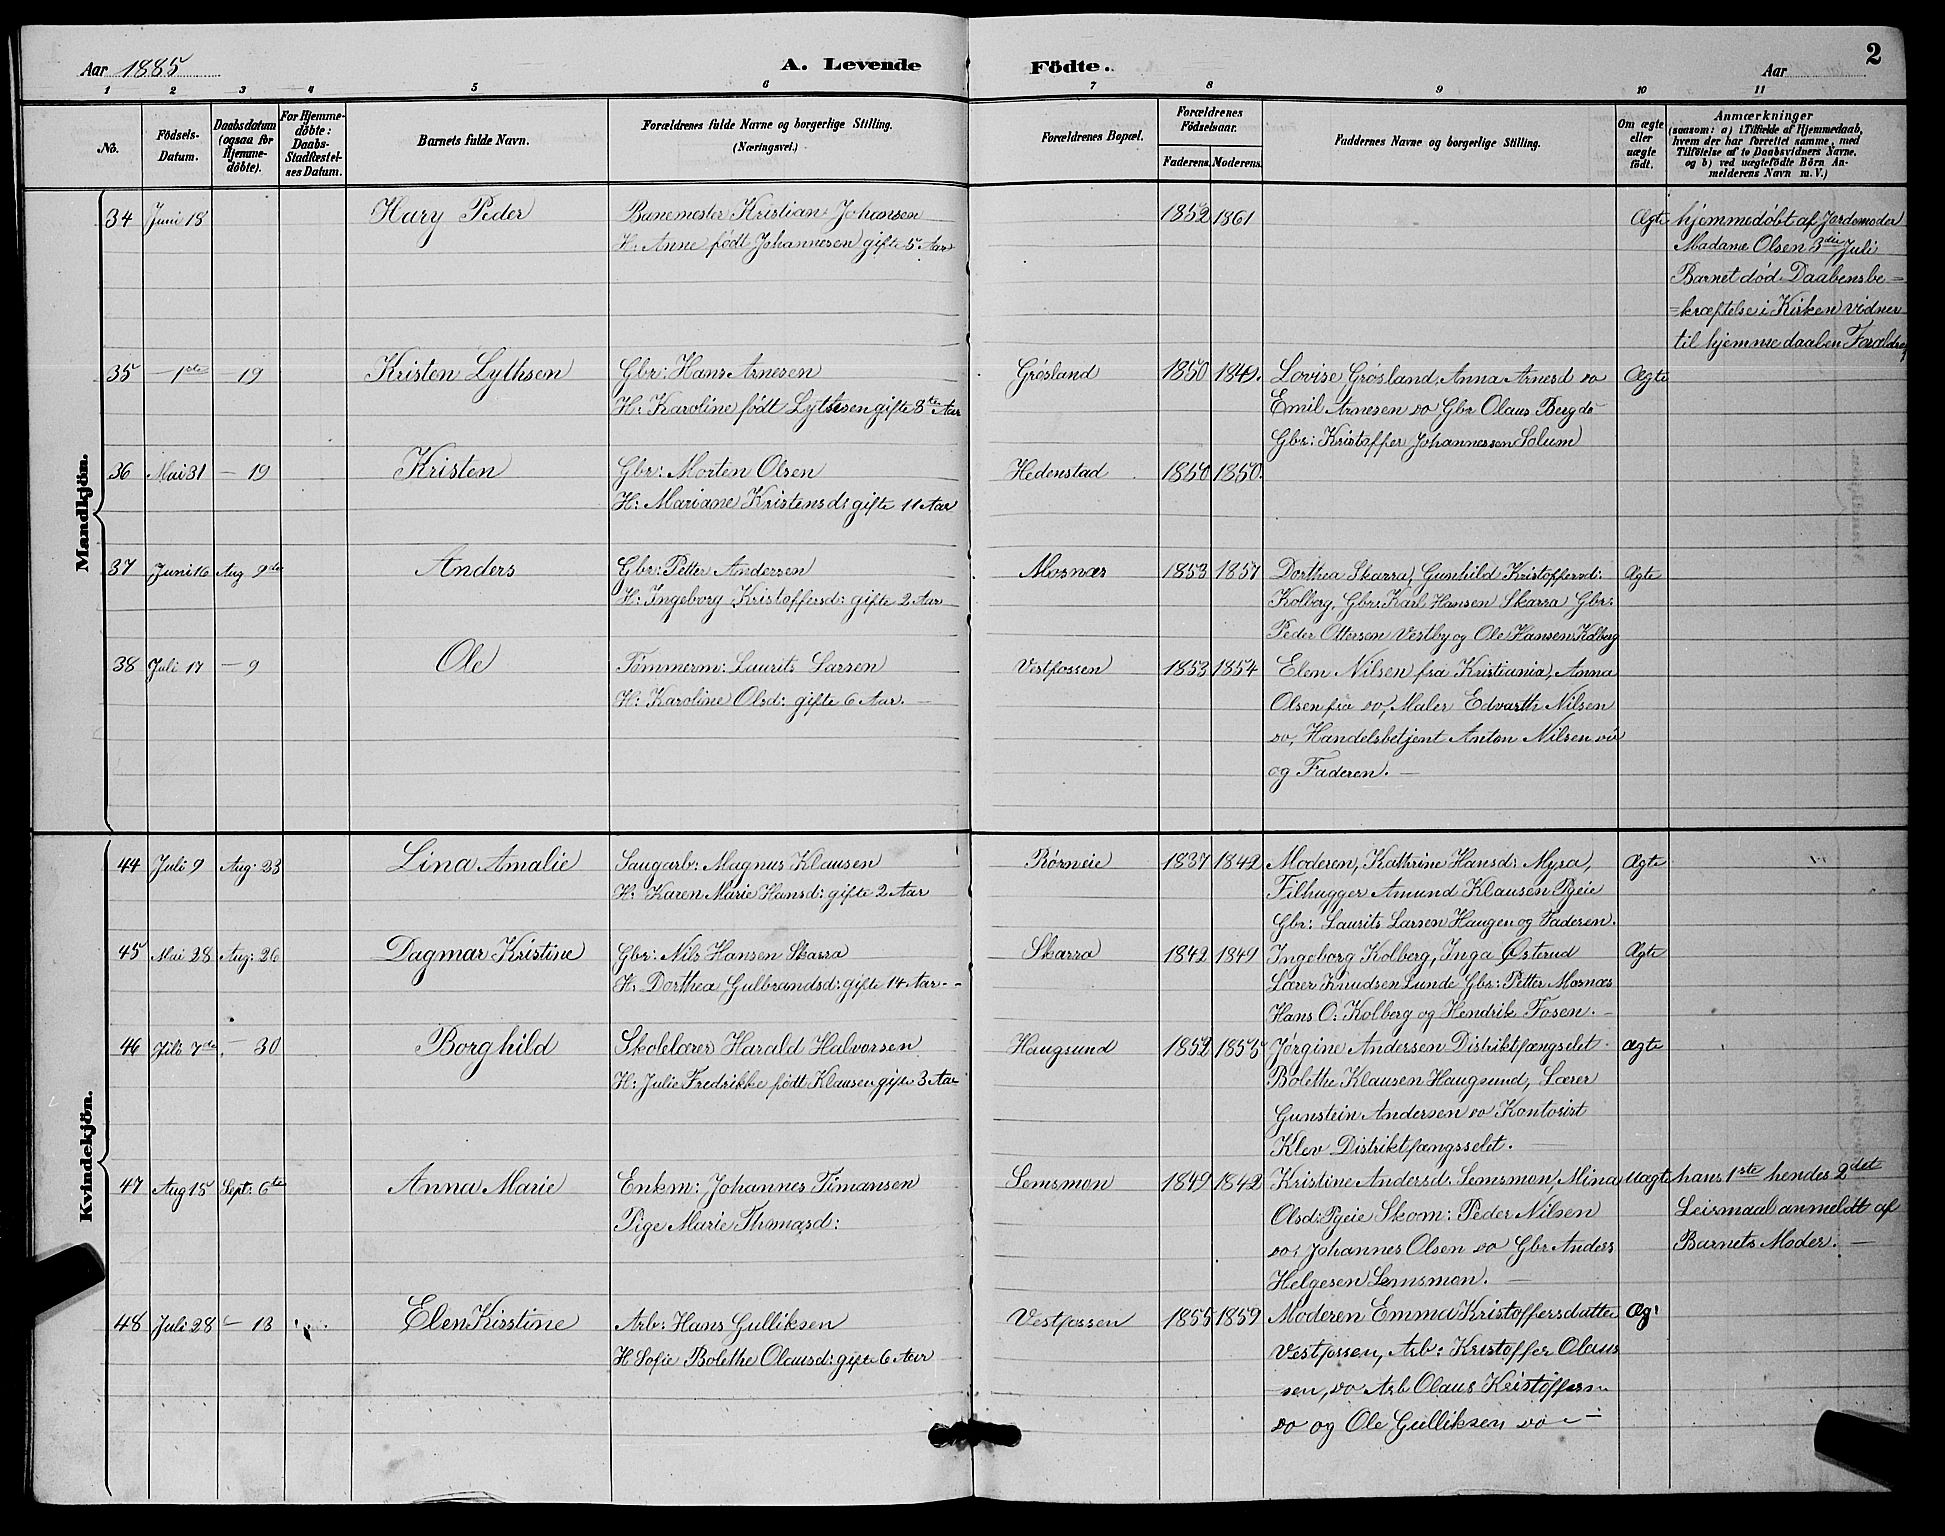 Aar 1885
A. Levende Födte.
Aar
2
1 2 3 4 5 6 7 8 9 10 11
No.
Födsels-Datum.
Daabsdatum (ogsaa for Hjemme-döbte).
For Hjemme-döbte: Daabs-Stadfæstel-ses Datum.
Barnets fulde Navn.
Forældrenes fulde Navne og borgerlige Stilling.
(Næringsvei.)
Forældrenes Bopæl.
Forældrenes Födselsaar.
Faderens. Moderens.
Faddernes Navne og borgerlige Stilling.
Om ægte eller uægte födt.
Anmærkninger
(saasom: a) i Tilfælde af Hjemmedaab,
hvem der har forrettet samme, med
Tilföielse af to Daabsvidners Navne,
og b) ved uægtefödte Börn An-
melderens Navn m. V.)
Mandkjön.
34 Juni 18 Hary Peder Banemester Kristian Johansen 1852 1861 Ægte hjemmedøbt af Jordemoder
H: Anne født Johannesen gifte 5 Aar Madame Olsen 3die Juli
Barnet død. Daabensbe-
=kræftelse i Kirken vidner
til hjemme daaben Forældre
35 — 1ste — 19 Kristen Lythsen Gbr: Hans Arnesen Grøsland 1850 1849. Lovise Grøsland, Anna Arnesd do Ægte
H: Karoline født Lythsen gifte 8te Aar Emil Arnesen do Gbr Olaus Berg do
Gbr: Kristoffer Johannessen Solum
36 Mai 31 — 19 Kristen Gbr: Morten Olsen Hedenstad 1850 1850.
H: Mariane Kristensd: gifte 11 Aar
37 Juni 16 Aug 9de Anders Gbr: Petter Andersen Mosnæs 1853 1857 Dorthea Skarra, Gunhild Kristoffersd: Ægte
H: Ingeborg Kristoffersd: gifte 2 Aar Kolberg, Gbr: Karl Hansen Skarra Gbr:
Peder Ottersen Vestby og Ole Hansen Kolberg
38 Juli 17 — 9 Ole Tømmerm: Laurits Larsen Vestfossen 1853 1854 Elen Nilsen fra Kristiania, Anna
H: Karoline Olsd: gifte 6 Aar. — Olsen fra do, Maler Edvarth Nilsen
do, Handelsbetjent Anton Nilsen
og Faderen. —
Kvindekjön.
44 Juli 9 Aug. 23 Lina Amalie Saugarb: Magnus Klausen Rørneie 1837 1842 Moderen, Kathrine Hansd: Myra, Ægte
H: Karen Marie Hansd: gifte 2 Aar Filhugger Amund Klausen Pgeie
Gbr: Laurits Larsen Haugen og Faderen.
45 Mai 28 Aug: 26 Dagmar Kristine Gbr: Nils Hansen Skarra Skarra 1842 1849 Ingeborg Kolberg, Inga Østerud Ægte
H: Dorthea Gulbrandsd: gifte 14 Aar. - Lærer Knudsen Lunde Gbr: Petter Mosnæs
Hans O: Kolberg og Hendrik Fosen. -
46 Juli 7de — 30 Borghild Skolelærer Harald Halvorsen Haugsund 1852 1855 Jørgine Andersen Distriktfængselet Ægte
H: Julie Fredrikke født Klausen gifte 3 Aar Bolethe Klausen Haugsund, Lærer
Gunstein Andersen do Kontorist
Klev Distriktfængsselet. —
47 Aug 15 Sept: 6te Anna Marie Enkm: Johannes Timansen Semsmoen 1849 1842 Kristine Andersd. Semsmoen, Mina uægte hans 1ste hendes 2det
Pige Marie Thomasd: Olsd: Pgeie Skom: Peder Nilsen Leiermaal anmeldt af
do, Johannes Olsen do Gbr Anders Barnets Moder. —
Helgesen Semsmoen. —
48 Juli 28 — 13 Elen Kristine Arb: Hans Gulliksen Vestfossen 1855 1859 Moderen Emma Kristoffersdatter Æg
H Sofie Bolethe Olausd: gifte 6 Aar Vestfossen, Arb: Kristoffer Olaus
sen, do Arb Olaus Kristoffersen
do og Ole Gulliksen do —